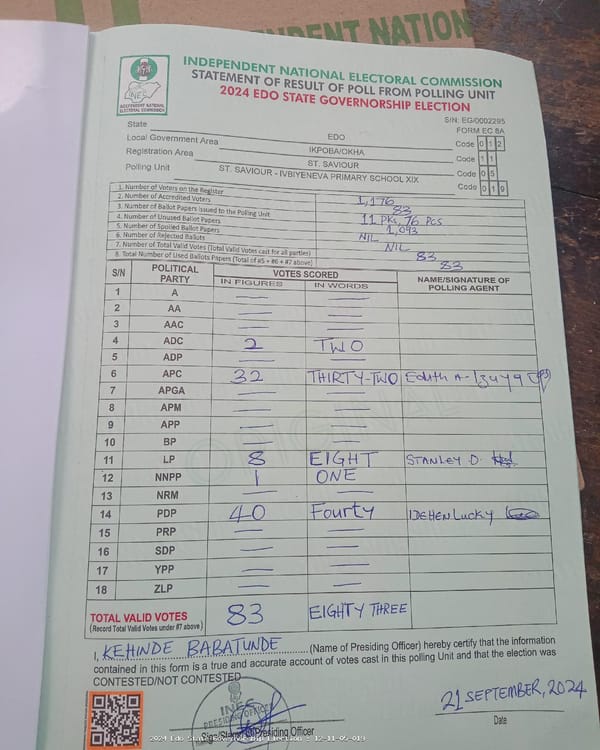 INDEPENDENT NATION
INDEPENDENT NATIONAL ELECTORAL COMMISSION
STATEMENT OF RESULT OF POLL FROM POLLING UNIT
2024 EDO STATE GOVERNORSHIP ELECTION
INEC
INDEPENDENT NATIONAL ELECTORAL COMMISSION
S/N: EG/0002295
FORM EC 8A
State EDO Code 0 1 2
Local Government Area IKPOBA/OKHA Code 1 1
Registration Area ST. SAVIOUR Code 0 5
Polling Unit ST. SAVIOUR - IVBIYENEVA PRIMARY SCHOOL XIX Code 0 1 9
1. Number of Voters on the Register 1,176
2. Number of Accredited Voters 83
3. Number of Ballot Papers issued to the Polling Unit 11 PKs, 76 PCS
4. Number of Unused Ballot Papers 1,093
5. Number of Spoiled Ballot Papers NIL
6. Number of Rejected Ballots NIL
7. Number of Total Valid Votes (Total Valid Votes cast for all parties) 83
8. Total Number of Used Ballots Papers (Total of #5 + #6 + #7 above) 83
S/N POLITICAL PARTY VOTES SCORED NAME/SIGNATURE OF POLLING AGENT
IN FIGURES IN WORDS
1 A — —
2 AA — —
3 AAC — —
4 ADC 2 TWO
5 ADP — —
6 APC 32 THIRTY-TWO Edith A.
7 APGA — —
8 APM — —
9 APP — —
10 BP — —
11 LP 8 EIGHT STANLEY O.
12 NNPP 1 ONE
13 NRM — —
14 PDP 40 Fourty IDEHEN Lucky
15 PRP — —
16 SDP — —
17 YPP — —
18 ZLP — —
TOTAL VALID VOTES 83 EIGHTY THREE
(Record Total Valid Votes under #7 above)
I, KEHINDE BABATUNDE (Name of Presiding Officer) hereby certify that the information
contained in this form is a true and accurate account of votes cast in this polling Unit and that the election was
CONTESTED/NOT CONTESTED
INEC
PRESIDING OFFICER
21 SEPTEMBER, 2024
Sign/Stamp of Presiding Officer Date
2024 Edo State Governorship Election - 12-11-05-019